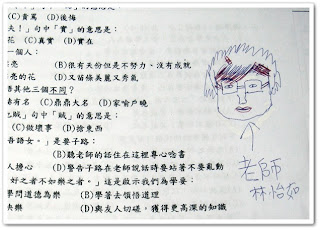 (C)責罵　(D)後悔
！」句中「實」的意思是：
花　(C)真實　(D)實在
一個人：
亮　(B)很有天份但是不努力、沒有成就
亮的花　(D)又留條美麗又秀氣
語其他三個不同？
有名　(C)鼎鼎大名　(D)家喻戶曉
賊」句中「賊」的意思是：
(C)做壞事　(D)搶東西
吾語女。」是要子路：
(B)聽老師的話住在這裡專心唸書
人擔心　(D)警告子路在老師說話時要站著不要亂動
好之者不如樂之者。」這是啟示我們為學要：
學問道德為樂　(B)學著去領悟道理
快樂　(D)與友人切磋，獲得更高深的知識
老師
林怡如